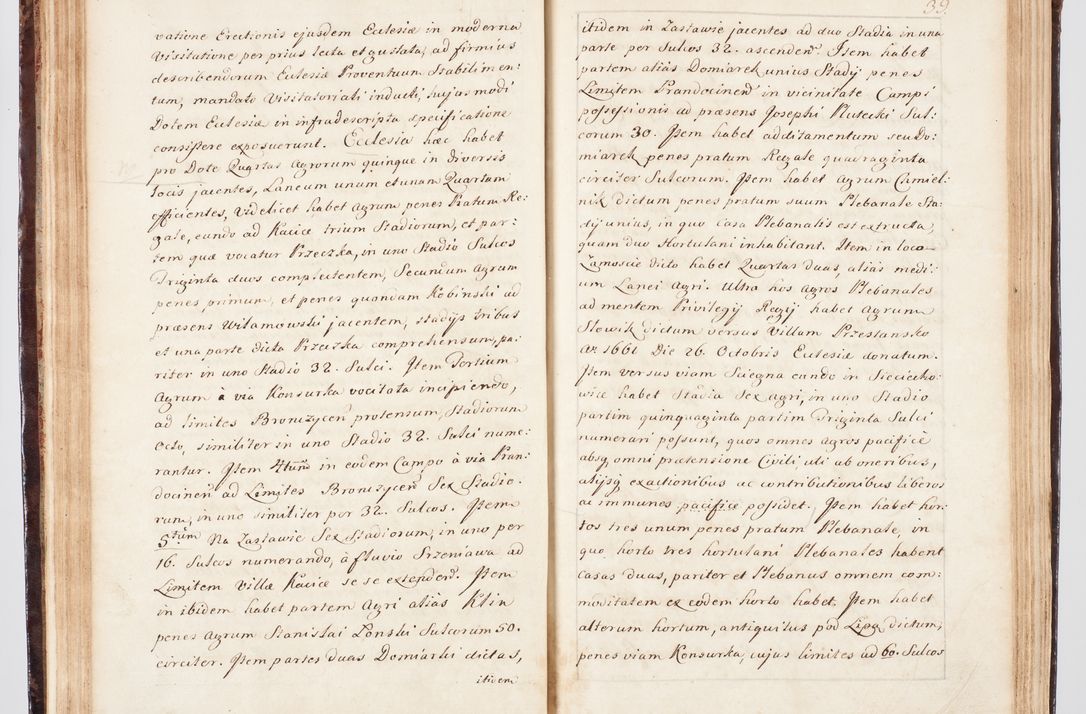 vatione Erectionis ejusdem Ecclesiæ in moderna
Visitatione per prius lecta et gustata, ad firmius
describendorum Ecclesiæ Proventuum Stabilimen:
tum, mandato Visitatoriali inducti, hujusmodi
Dotem Ecclesiæ in infradescripta specificatione
consistere exposuerunt. Ecclesia hæc habet
pro Dote Quartas Agrorum quinque in diversis
locis jacentes, Laneum unum et unam Quartam
efficientes, Videlicet habet Agrum penes Pratum Re:
gale, eundo ad Kacice trium Stadiorum, et par:
tem quæ vocatur Przeczka, in uno Stadio Sulcos
Triginta duos complectentem, Secundum Agrum
penes primum, et penes quondam Kobinski ad
præsens Witamowski jacentem, Stadijs tribus
et una parte dicta Przeczka comprehensum, pa:
riter in uno Stadio 32. Sulci. Item Tertium
Agrum à via Konsurka vocitata incipiendo,
ad limites Bronczycen̄ protensum, Stadiorum
Octo, similiter in uno Stadio 32. Sulci nume:
rantur. Item 4tum in eodem Campo à via Pran:
docinen̄ ad Limites Bronczycen̄ Sex Stadio:
rum, in uno similiter per 32. Sulcos. Item
5tum Na Zastawie Sex Stadiorum, in uno per
16. Sulcos numerando, à fluvio Srzeniawa ad
Limitem Villæ Kacice se se extendēn. Item
in ibidem habet partem Agri alias Klin
penes Agrum Stanislai Ponski Sulcorum 50.
circiter. Item partes duas Domiarki dictas,
itidem
39.
itidem in Zastawie jacentes ad duo Stadia in una
parte per Sulcos 32. ascenden̄. Item habet
partem alias Domiarek unius Stadij penes
Limitem Prandocinen̄ in vicinitate Campi
possessionis ad præsens Josephi Pluteski Sul:
corum 30. Item habet additamentum seu Do:
miarek penes pratum Regale quadraginta
circiter Sulcorum. Item habet agrum Cmiel:
nik dictum penes pratum suum Plebanale Sta:
dij unius, in quo Casa Plebanalis est extructa,
quam duo Hortulani inhabitant. Item in loco
Zamoscie dicto habet Quartas duas, alias medi:
um Lanei Agri. Ultra hos Agros Plebanales
ad mentem Privilegij Regij habet Agrum
Slowik dictum versus Villam Przestansko
Aō 1661 Die 26. Octobris Ecclesiæ donatum.
Item versus viam Sciegna eundo in Sieciecho:
wice habet Stadia Sex agri, in uno Stadio
partim quinquaginta partim Triginta Sulci
numerari possunt, quos omnes Agros pacificè
absq, omni prætensione Civili uti ab oneribus,
alijsq exactionibus ac contributionibus liberos
ac immunes pacifice possidet. Item habet hor:
tos tres unum penes pratum Plebanale, in
quo horto tres hortulani Plebanales habent
Casas duas, pariter et Plebanus omnem com:
moditatem ex eodem horto habet. Item habet
alterum hortum, antiquitus pod Lipą dictum,
penes viam Konsurka, cujus limites ad 60. Sulcos